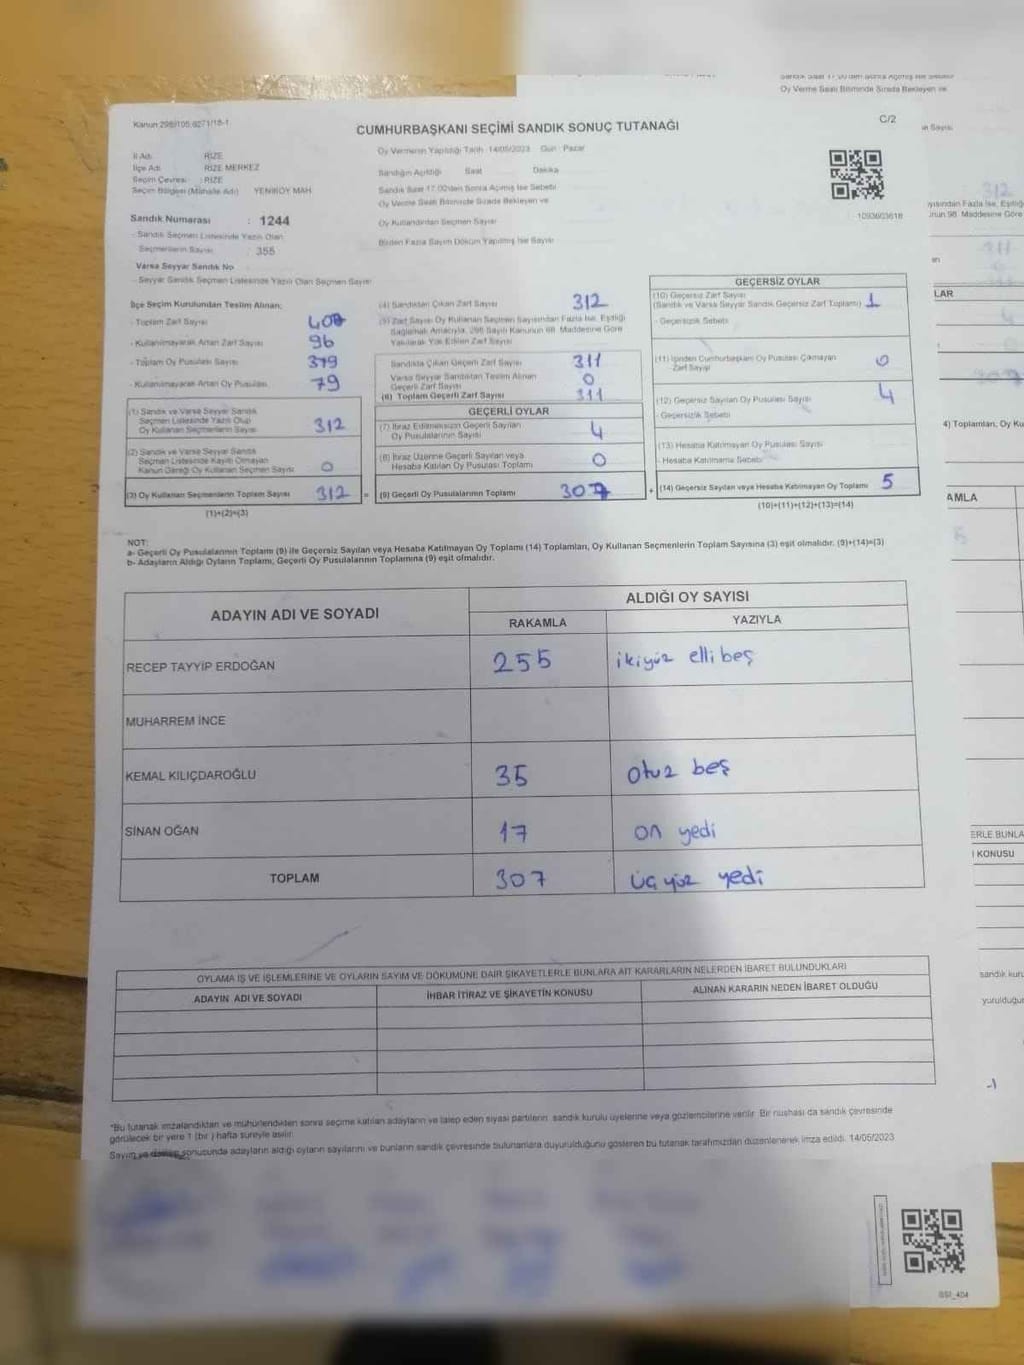 Sandık Saat 17.00'den Sonra Açılmış İse Sebebi
Oy Verme Saati Bitiminde Sırada Bekleyen ve
Kanun 298/105.6271/18-1
CUMHURBAŞKANI SEÇİMİ SANDIK SONUÇ TUTANAĞI
C/2
İl Adı : RİZE
İlçe Adı : RİZE MERKEZ
Seçim Çevresi : RİZE
Seçim Bölgesi (Mahalle Adı) YENİKÖY MAH
Sandık Numarası : 1244
- Sandık Seçmen Listesinde Yazılı Olan
Seçmenlerin Sayısı : 355
Varsa Seyyar Sandık No
- Seyyar Sandık Seçmen Listesinde Yazılı Olan Seçmen Sayısı
Oy Vermenin Yapıldığı Tarih : 14/05/2023 Gün : Pazar
Sandığın Açıldığı Saat Dakika
Sandık Saat 17.00'den Sonra Açılmış İse Sebebi
Oy Verme Saati Bitiminde Sırada Bekleyen ve
Oy Kullandırılan Seçmen Sayısı
Birden Fazla Sayım Döküm Yapılmış İse Sayısı
1093603618
İlçe Seçim Kurulundan Teslim Alınan;
- Toplam Zarf Sayısı
- Kullanılmayarak Artan Zarf Sayısı 96
- Toplam Oy Pusulası Sayısı
- Kullanılmayarak Artan Oy Pusulası 79
(1) Sandık ve Varsa Seyyar Sandık
Seçmen Listesinde Yazılı Olup
Oy Kullanan Seçmenlerin Sayısı 312
(2) Sandık ve Varsa Seyyar Sandık
Seçmen Listesinde Kayıtlı Olmayan
Kanun Gereği Oy Kullanan Seçmen Sayısı 0
(3) Oy Kullanan Seçmenlerin Toplam Sayısı 312 =
(1)+(2)=(3)
(4) Sandıktan Çıkan Zarf Sayısı 312
(5) Zarf Sayısı Oy Kullanan Seçmen Sayısından Fazla İse, Eşitliği
Sağlamak Amacıyla, 298 Sayılı Kanunun 98. Maddesine Göre
Yakılarak Yok Edilen Zarf Sayısı
Sandıkta Çıkan Geçerli Zarf Sayısı 311
Varsa Seyyar Sandıktan Teslim Alınan
Geçerli Zarf Sayısı 0
(6) Toplam Geçerli Zarf Sayısı 311
GEÇERLİ OYLAR
(7) İtiraz Edilmeksizin Geçerli Sayılan
Oy Pusulalarının Sayısı 4
(8) İtiraz Üzerine Geçerli Sayılan veya
Hesaba Katılan Oy Pusulası Toplamı 0
(9) Geçerli Oy Pusulalarının Toplamı 307 +
GEÇERSİZ OYLAR
(10) Geçersiz Zarf Sayısı
(Sandık ve Varsa Seyyar Sandık Geçersiz Zarf Toplamı) 1
- Geçersizlik Sebebi
(11) İçinden Cumhurbaşkanı Oy Pusulası Çıkmayan
Zarf Sayısı 0
(12) Geçersiz Sayılan Oy Pusulası Sayısı 4
- Geçersizlik Sebebi
(13) Hesaba Katılmayan Oy Pusulası Sayısı
- Hesaba Katılmama Sebebi
(14) Geçersiz Sayılan veya Hesaba Katılmayan Oy Toplamı 5
(10)+(11)+(12)+(13)=(14)
NOT:
a- Geçerli Oy Pusulalarının Toplamı (9) ile Geçersiz Sayılan veya Hesaba Katılmayan Oy Toplamı (14) Toplamları, Oy Kullanan Seçmenlerin Toplam Sayısına (3) eşit olmalıdır. (9)+(14)=(3)
b- Adayların Aldığı Oyların Toplamı, Geçerli Oy Pusulalarının Toplamına (9) eşit olmalıdır.
ADAYIN ADI VE SOYADI
ALDIĞI OY SAYISI
RAKAMLA YAZIYLA
RECEP TAYYİP ERDOĞAN 255 ikiyüz elli beş
MUHARREM İNCE
KEMAL KILIÇDAROĞLU 35 otuz beş
SİNAN OĞAN 17 on yedi
TOPLAM 307 üç yüz yedi
OYLAMA İŞ VE İŞLEMLERİNE VE OYLARIN SAYIM VE DÖKÜMÜNE DAİR ŞİKAYETLERLE BUNLARA AİT KARARLARIN NELERDEN İBARET BULUNDUKLARI
ADAYIN ADI VE SOYADI İHBAR İTİRAZ VE ŞİKAYETİN KONUSU ALINAN KARARIN NEDEN İBARET OLDUĞU
*Bu tutanak imzalandıktan ve mühürlendikten sonra seçime katılan adayların ve talep eden siyasi partilerin sandık kurulu üyelerine veya gözlemcilerine verilir. Bir nüshası da sandık çevresinde
görülecek bir yere 1 (bir) hafta süreyle asılır.
Sayım ve döküm sonucunda adayların aldığı oyların sayılarını ve bunların sandık çevresinde bulunanlara duyurulduğunu gösteren bu tutanak tarafımızdan düzenlenerek imza edildi. 14/05/2023
SSI_404
ın Sayısı
312
yısından Fazla İse, Eşitliği
unun 98. Maddesine Göre
LAR
4) Toplamları, Oy Ku
AMLA
5
ERLE BUNLA
KONUSU
sandık kuru
yurulduğun
-1